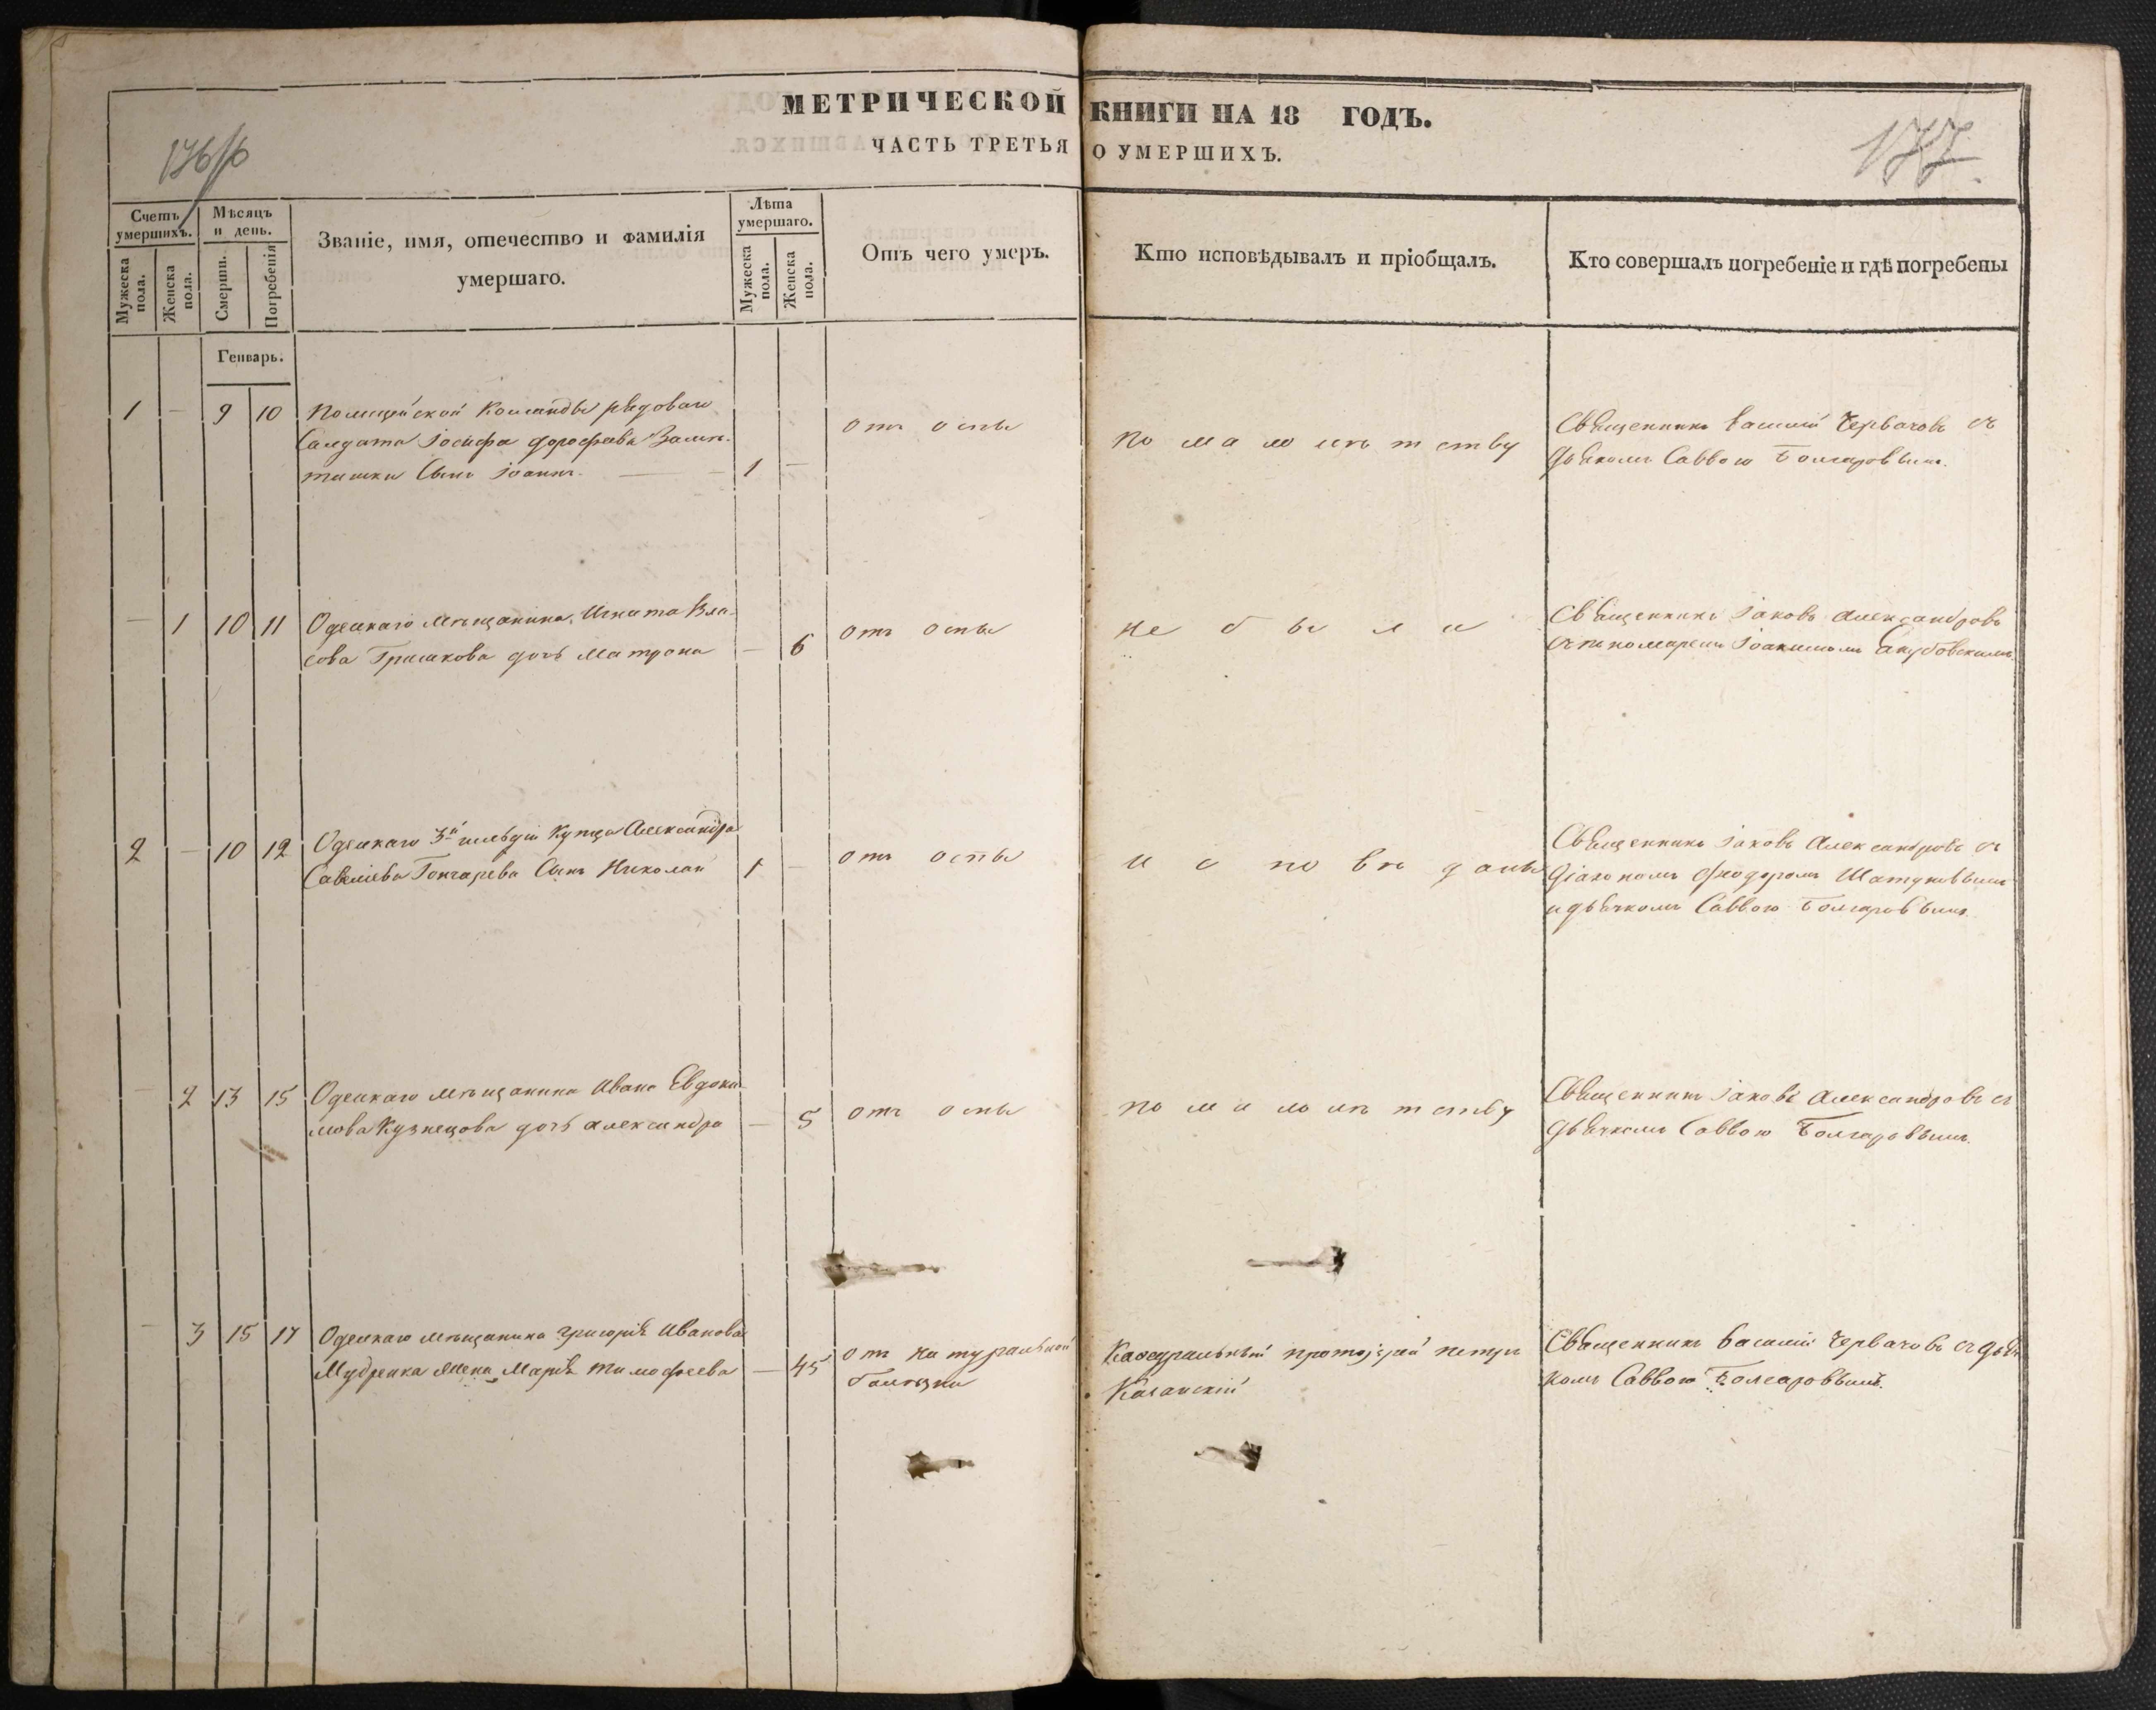 МЕТРИЧЕСКОЙ КНИГИ НА 18 ГОДЪ.
ЧАСТЬ ТРЕТЬЯ О УМЕРШИХЪ.
177
Счетъ умершихъ.
Мужеска пола.
Женска пола.
Мѣсяцъ и день.
Смерти.
Погребенія
Званіе, имя, отечество и фамилія
умершаго.
Лѣта умершаго.
Мужеска пола.
Женска пола.
Отъ чего умеръ.
Кто исповѣдывалъ и пріобщалъ.
Кто совершалъ погребеніе и гдѣ погребены
Генварь.
1 — 9 10
Полицейской Команды рядоваго
Салдата Іосифа Дорофѣева
тишки Сынъ Іоаннъ.
1 —
отъ оспы
по малолѣтству
Священникъ Василій Червачовъ съ
дьячкомъ Саввою Болгаровымъ.
— 1 10 11
Одескаго мѣщанина, Игната Вла-
сова Гришкова дочь Матрона
— 6
отъ оспы
не были
Священникъ Іаковъ Александровъ
съ пономаремъ Іоакимомъ
2 — 10 12
Одескаго 3й гильдіи Купца Александра
Савелiева Гончарева Сынъ Николай
1 —
отъ оспы
исповѣданы
Священникъ Іаковъ Александровъ съ
Діакономъ Ѳеодоромъ
и дьячкомъ Саввою Болгаровымъ.
— 2 13 15
Одескаго мѣщанина Ивана Евдоки-
мова Кузнецова дочь Александра
— 5
отъ оспы
по малолѣтству
Священникъ Іаковъ Александровъ съ
дьячкомъ Саввою Болгаровымъ.
— 3 15 17
Одескаго мѣщанина Григорія Иванова
Мудренка Жена Марія Тимофеева
— 45
отъ натуральной
болѣзни
Каѳедральный протоіерей Петръ
Казанскій
Священникъ Василій Червачовъ съ дьяч
комъ Саввою Болгаровымъ.